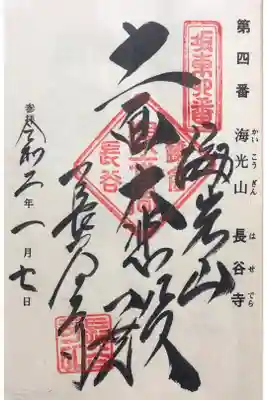 第四番 海光山 長谷寺
かいこうざん はせでら
坂東四番
海光山
十一面大悲殿
長谷寺
奉拝 令和二年一月七日
長谷